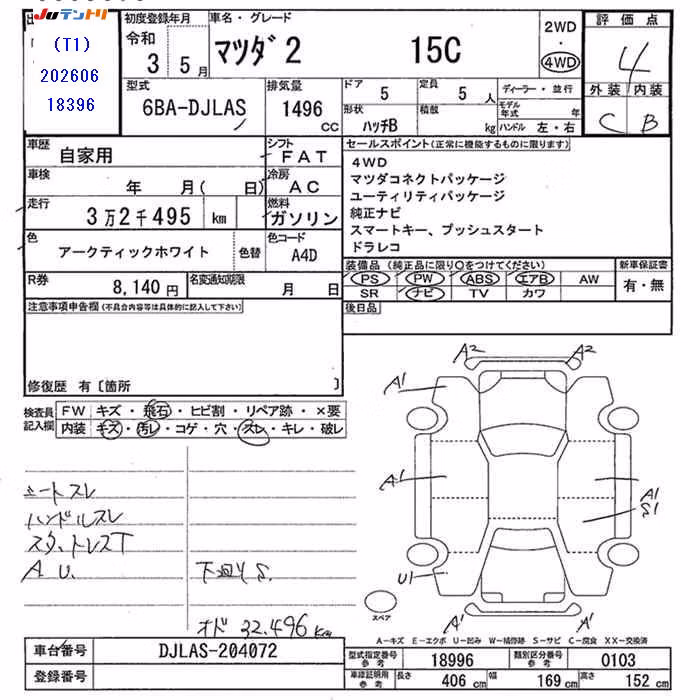 Juテントリ
(T1)
202606
18396
初度登録年月
令和
3 5月
車名・グレード
マツダ2 15C
2WD
・
4WD
評価点
4
外装 内装
C B
型式
6BA-DJLAS
排気量
1496
cc
ドア
5
定員
5 人
形状
ハッチB
積載
kg
ディーラー・並行
モデル年式 年
ハンドル 左・右
車歴
自家用
シフト
FAT
車検
年 月( 日)
冷房
AC
走行
3万2千495 km
燃料
ガソリン
色
アークティックホワイト
色替
色コード
A4D
R券
8,140円
名変通知期限
月 日
セールスポイント(正常に機能するものに限ります)
4WD
マツダコネクトパッケージ
ユーティリティパッケージ
純正ナビ
スマートキー、プッシュスタート
ドラレコ
装備品(純正品に限り〇をつけてください)
PS PW ABS エアB AW
SR ナビ TV カワ
新車保証書
有・無
後日品
注意事項申告欄(不具合内容等は具体的に記入して下さい)
修復歴 有〔箇所 〕
検査員記入欄
FW キズ・飛石・ヒビ割・リペア跡・×要
内装 キズ・汚レ・コゲ・穴・スレ・キレ・破レ
シートスレ
ハンドルスレ
スタットレスT
A U.
下廻りS.
オド 32,496km
A2 A2
A1
A1
A1
S1
U1
A1 A1
スペア
A-キズ E-エクボ U-凹み W-補修跡 S-サビ C-腐食 XX-交換済
車台番号
DJLAS-204072
登録番号
型式指定番号
参考
18996
類別区分番号
参考
0103
車庫証明用
参考
長さ 406cm 幅 169cm 高さ 152cm